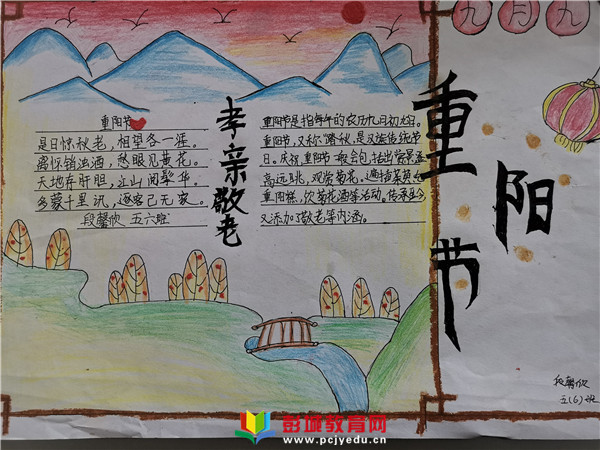 九月九
重阳节
重阳节
是日惊秋老，相望各一涯。
离怀销浊酒，愁眼见黄花。
天地存肝胆，江山阅鬓华。
多蒙千里讯，逐客已无家。
段馨欣 五六班
孝亲敬老
重阳节是指每年的农历九月初九日。
重阳节，又称"踏秋，是汉族传统节
日。庆祝重阳节一般会包括出游赏景
高远眺，观赏菊花、遍插茱萸
重阳糕，饮菊花酒等活动。
又添加了敬老等内涵。
段馨欣
五(6)班
彭城教育网
www.pcjyedu.cn